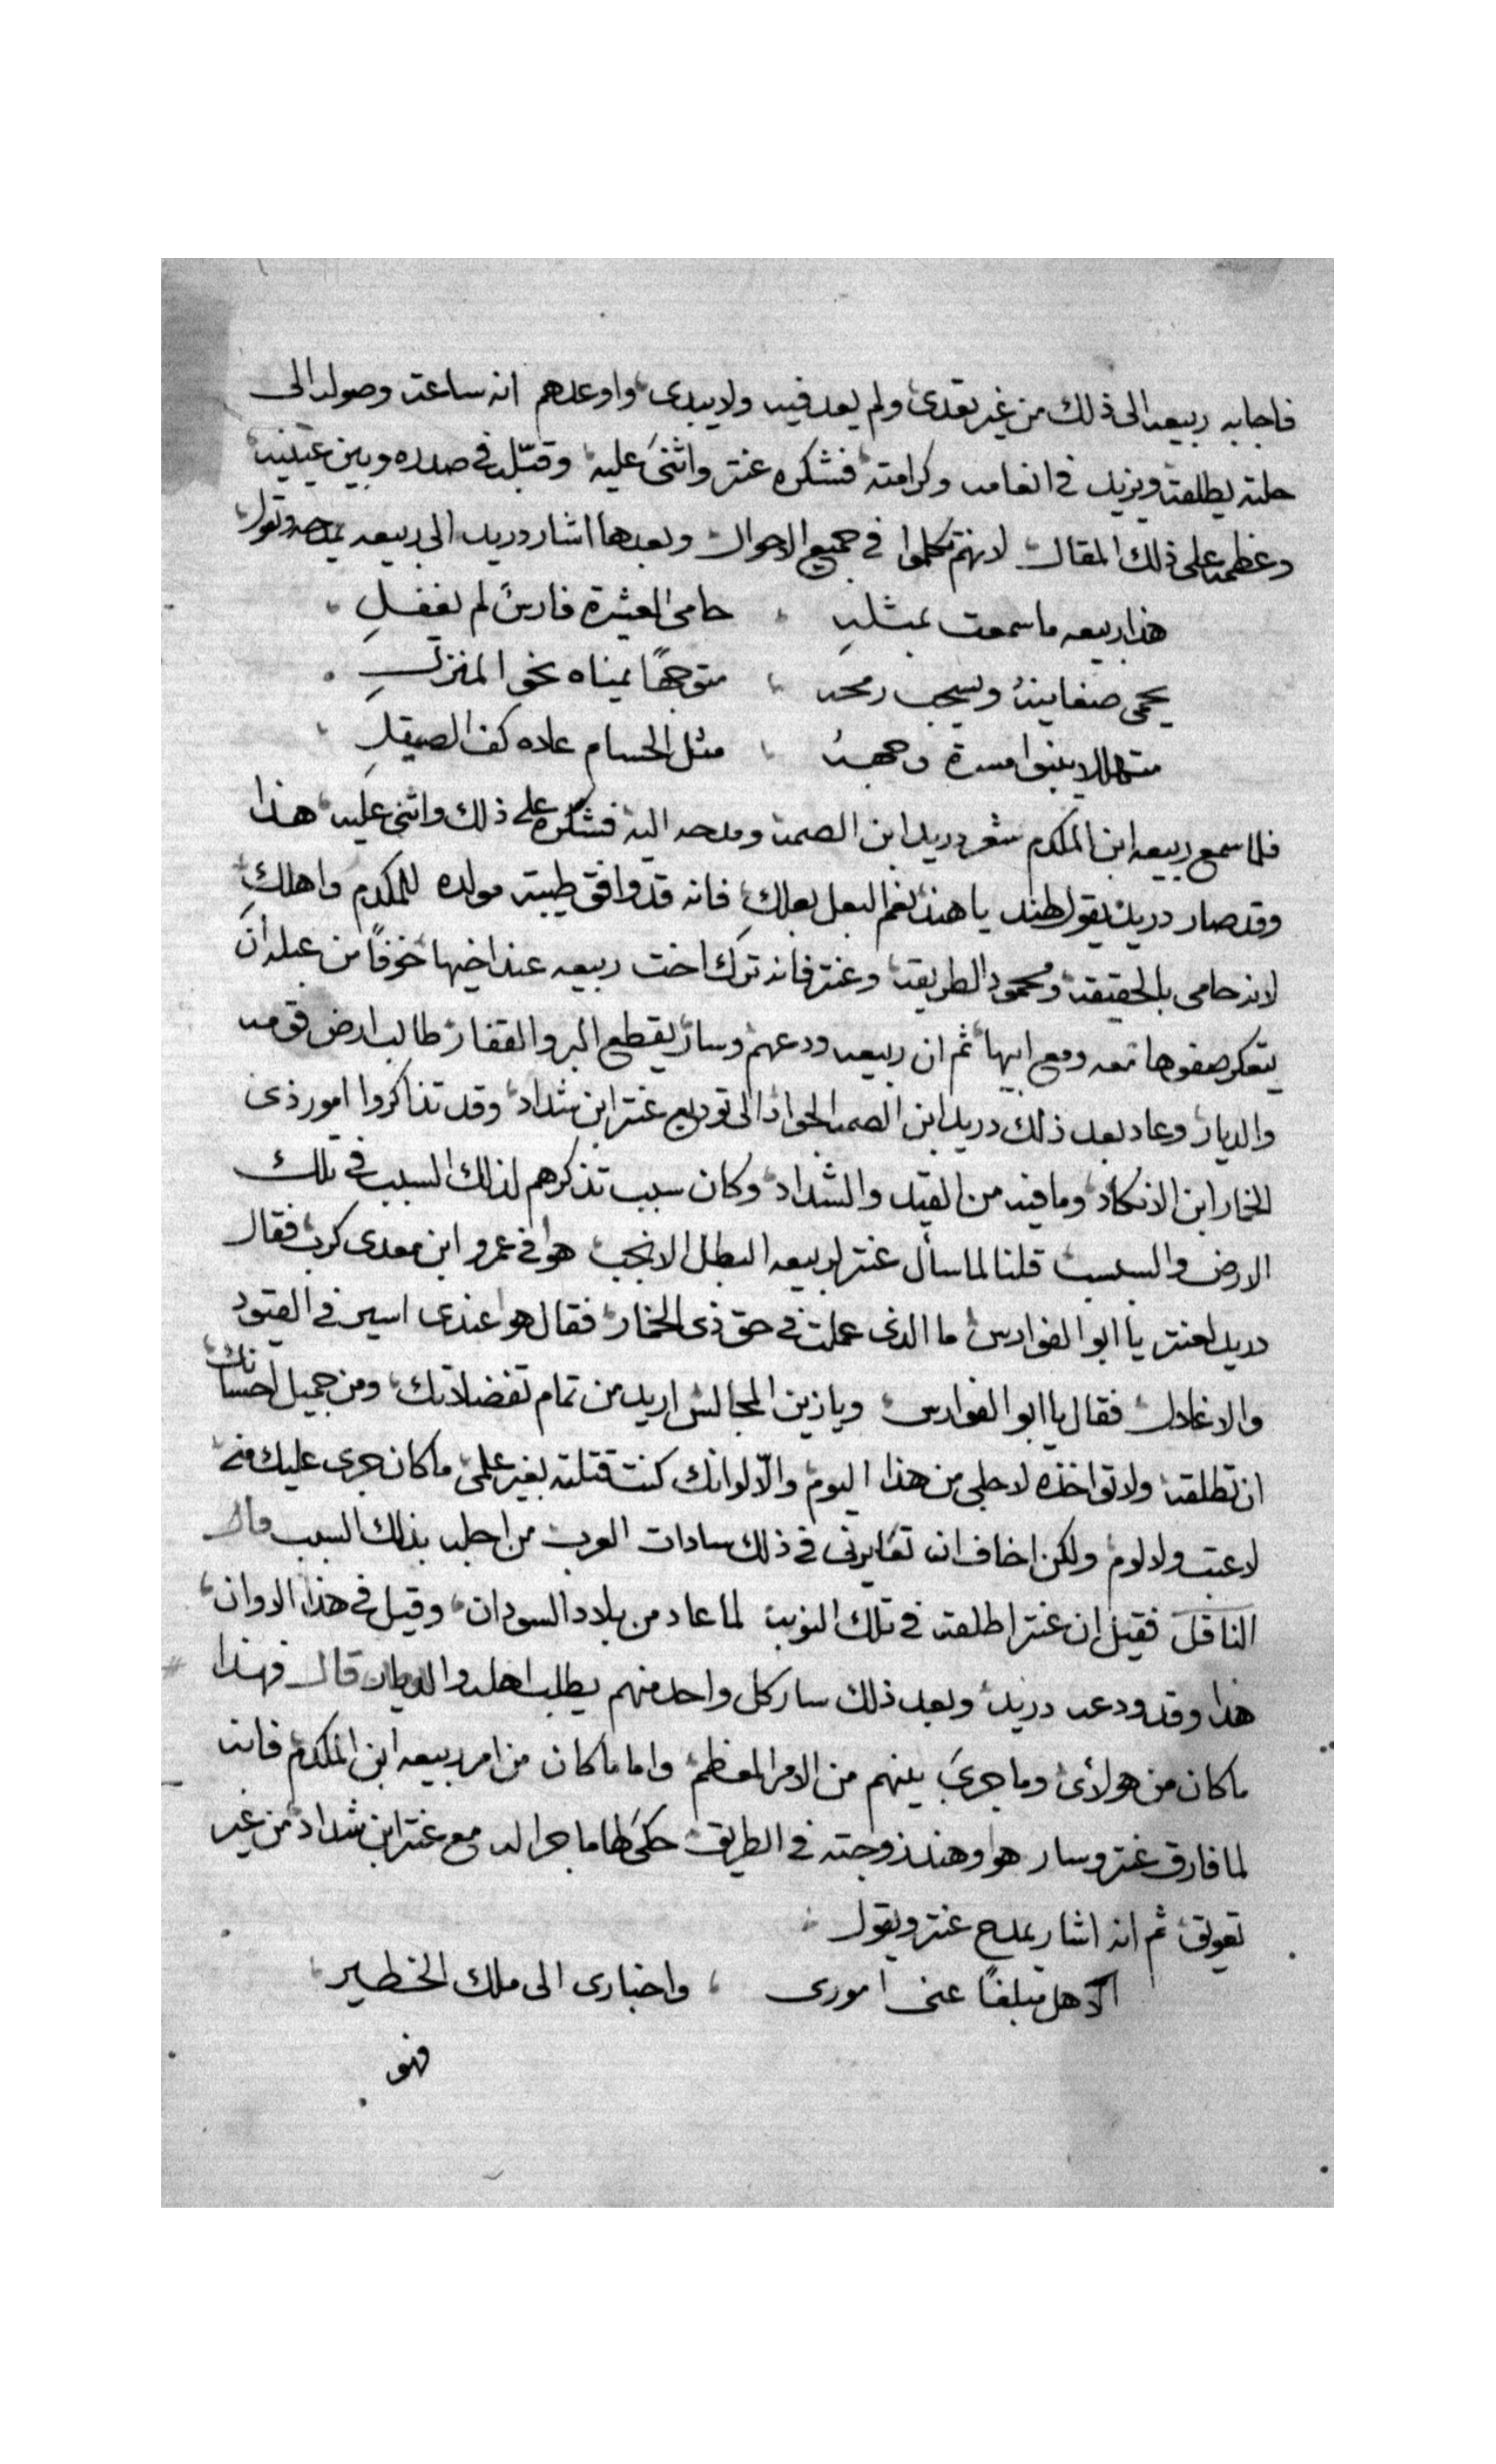 فاجابه ربيعه الى ذلك من غير تعدى ولم يعد فيه ولا يبدى واوعدهم انه ساعة وصوله الى
حلته يطلقه ويزيد في انعامه وكرامته فشكره عنتر واثنى عليه وقبّله في صدره وبين عينيه
وعظمه على ذلك المقال لانهم تكلموا في جميع الاحوال وبعدها اشار دريد الى ربيعه يمدحه ويقول
هذا ربيعه ما سمعت بمثلهِ حامى العشيرة فارسً لم يغفلِ
يحمى ضغاينهُ ويسحب رمحه متوجهًا يمناه نحو المنزلِ
متهللا اسرة وجههُ مثل الحسام علاه كف الصيقلِ
فلما سمع ربيعه ابن المكدم شعر دريد ابن الصمه ومدحه اليه فشكره على ذلك واثنى عليه هذا
وقد صار دريد يقول لهند يا هند نعم البعل بعلكِ فانه قد وافق طيبة مولده للمكدم واهلكِ
لانه حامى بالحقيقه ومحمود الطريقه وعنتر فانه ترك اخت ربيعه عند اخيها خوفًا من عبله ان
يتعكر صفوها معه ومع ابيها ثم ان ربيعه ودعهم وسار يقطع البر والقفار طالب ارض قومه
والديار وعاد بعد ذلك دريد ابن الصمه الجواد الى توديع عنتر ابن شداد وقد تذاكروا امور ذى
الخمار ابن الانكاد وما فيه من القيد والشداد وكان سبب تذكرهم لذلك السبب في تلك
الارض والسبسب قلنا لما سأل عنتر لربيعه البطل الانجب هوا في عمرو ابن معدى كرب فقال
دريد لعنتر يا ابو الفوارس ما الذى عملت في حق ذى الخمار فقال هوا عندى اسير في القيود
والاغلال فقال يا ابو الفوارس ويا زين المجالس اريد من تمام تفضلاتك ومن جميل احسانك
ان تطلقه ولا تواخذه لاجلى من هذا اليوم والّا لوانك كنت قتلته بغير علمى ما كان جرى عليك منه
لا عتب ولا لوم ولكن اخاف ان تعايرنى في ذلك سادات العرب من اجله بذلك السبب قال
الناقل فقيل ان عنتر اطلقه في تلك النوبه لما عاد من بلاد السودان وقيل في هذا الاوان
هذا وقد ودعه دريد وبعد ذلك سار كل واحد منهم يطلب اهله والديار قال فهذا
ما كان من هولأى وما جرى بينهم من الامر المعظم واما ما كان من امر ربيعه ابن المكدم فانه
لما فارق عنتر وسار هوا وهند زوجته في الطريق حكى لها ما جرا له مع عنتر ابن شداد من غير
تعويق ثم انه اشار يمدح عنتر ويقول
الا هل مبلغًا عنى امورى واخبارى الى ملك الخطير
فهو